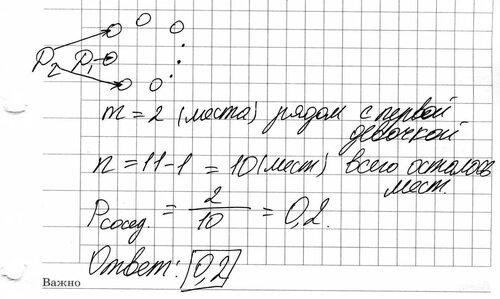 D₂ D₁
m = 2 (места) рядом с первой
девочкой
n = 11-1 = 10 (мест) всего осталось
мест.
Pсосед. = 2/10 = 0,2.
Ответ: 0,2
Важно